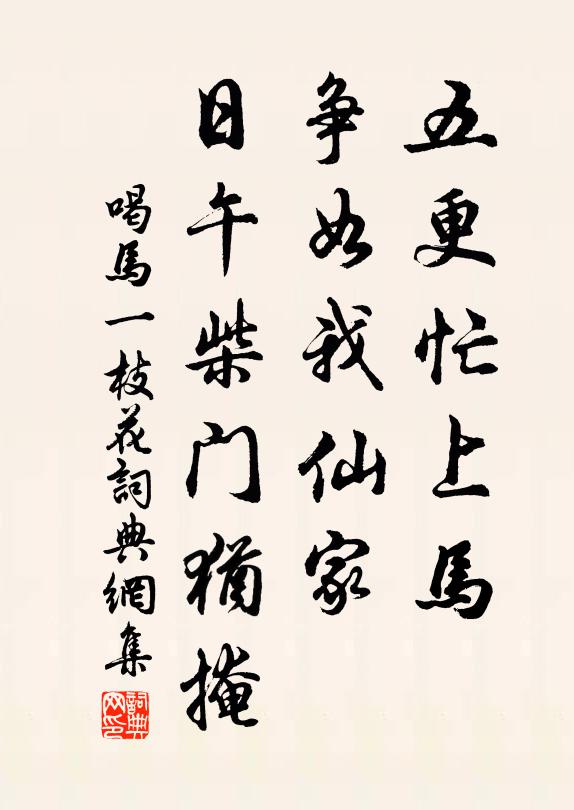 五更忙上馬
爭如我仙家
日午柴门猶掩
喝馬一枝花詞典網集
詞典网印